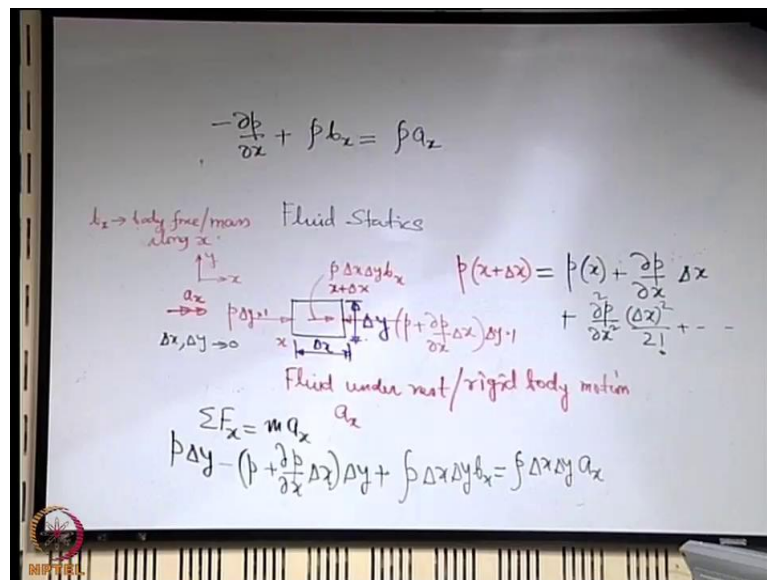 -∂p/∂x + ρb_x = ρa_x
b_x → body force/mass along x
Fluid Statics
y
x
a_x
Δx, Δy → 0
pΔy·1
ρΔxΔyb_x
x
x+Δx
Δx
Δy
(p + ∂p/∂x Δx)Δy·1
p(x+Δx) = p(x) + ∂p/∂x Δx
+ ∂²p/∂x² (Δx)²/2! + - -
Fluid under rest/rigid body motion
a_x
ΣF_x = ma_x
pΔy - (p + ∂p/∂x Δx)Δy + ρΔxΔyb_x = ρΔxΔy a_x
NPTEL